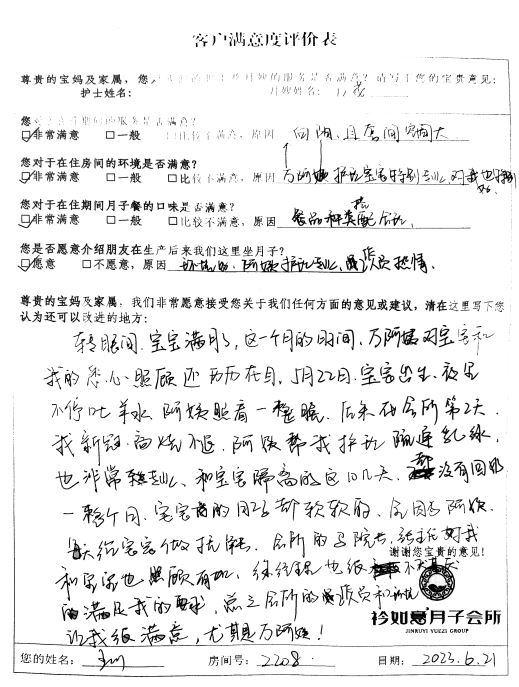 客户满意度评价表
尊贵的宝妈及家属，您对 的服务是否满意？请写下您的宝贵意见：
护士姓名： 月嫂姓名：
您 服务是否满意？
□非常满意 □一般 □比较不满意，原因 向阳，且房间宽大
您对于在住房间的环境是否满意？
□非常满意 □一般 □比较不满意，原因 万阿姨护理宝宝特别专业，对我也特别好。
您对于在住期间月子餐的口味是否满意？
□非常满意 □一般 □比较不满意，原因 餐品种类配合
您是否愿意介绍朋友在生产后来我们这里坐月子？
□愿意 □不愿意，原因 环境好，阿姨护理专业，服务员热情。
尊贵的宝妈及家属，我们非常愿意接受您关于我们任何方面的意见或建议，请在这里写下您
认为还可以改进的地方：
转眼间，宝宝满月了，这一个月的时间，万阿姨对宝宝和
我的悉心照顾还历历在目，5月22日，宝宝出生，夜里
不停吐羊水，阿姨照看一整晚，后来在会所第2天，
我新冠，高烧不退，阿姨帮我护理，疏通乳腺，
也非常专业，和宝宝隔离的这10几天，都没有回奶
一整个月，宝宝 的 都软软的，全因万阿姨
每天给宝宝做抚触，会所的马院长，张主任对我
谢谢您宝贵的意见！
和宝宝也照顾有加，徐经理也
的满足我的要求，总之会所的 员和
让我很满意，尤其万阿姨！
衿如意月子会所
JINRUYI YUEZI GROUP
您的姓名： 房间号：2208. 日期：2023.6.21